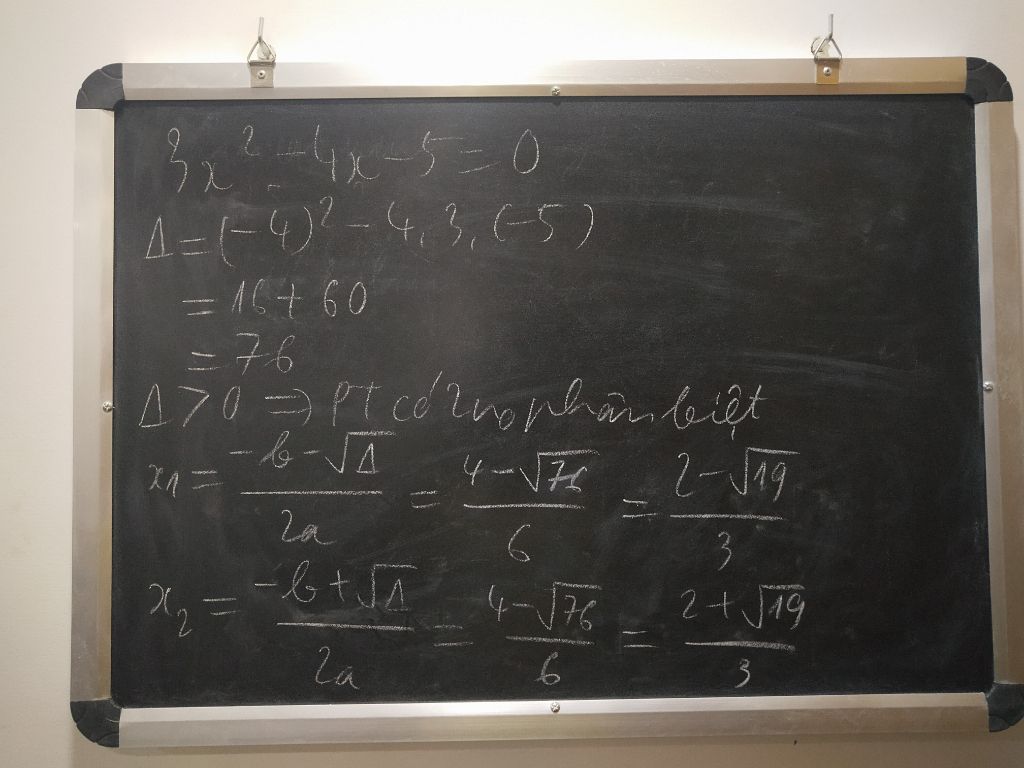 3x² - 4x - 5 = 0
Δ = (-4)² - 4.3.(-5)
= 16 + 60
= 76
Δ > 0 => PT có 2 no phân biệt
x₁ = (-b - √Δ)/2a = (4 - √76)/6 = (2 - √19)/3
x₂ = (-b + √Δ)/2a = (4 - √76)/6 = (2 + √19)/3